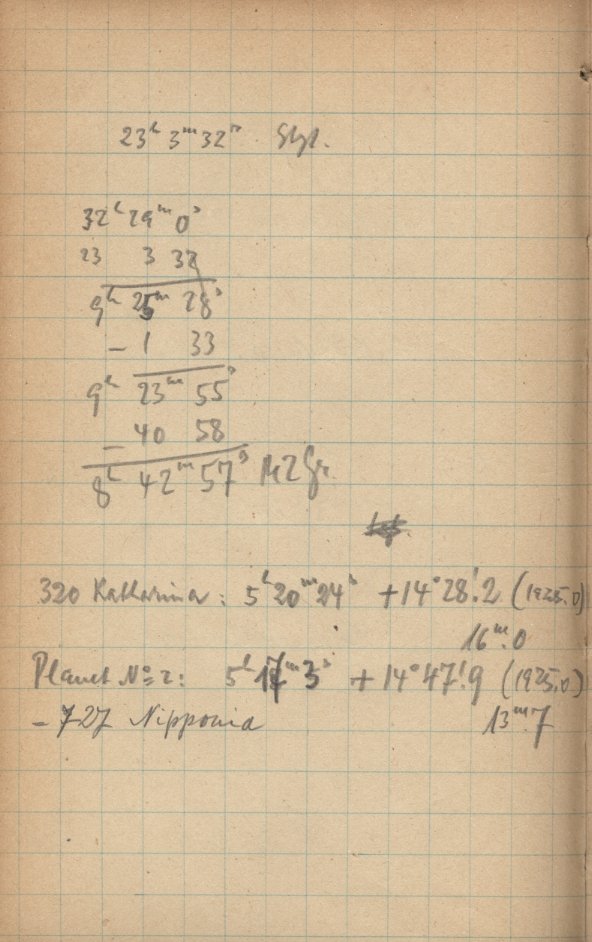 23ʰ 3ᵐ 32ˢ
32ʰ 29ᵐ 0ˢ
23 3 32
9ʰ 25ᵐ 28ˢ
– 1 33
9ʰ 23ᵐ 55ˢ
– 40 58
8ʰ 42ᵐ 57ˢ MZGr.
320 Katharina: 5ʰ 20ᵐ 24ˢ +14° 28!2 (1925,0)
16ᵐ.0
Planet Nº 2: 5ʰ 17ᵐ 3ˢ + 14° 47!9 (1925,0)
– 727 Nipponia 13ᵐ.7